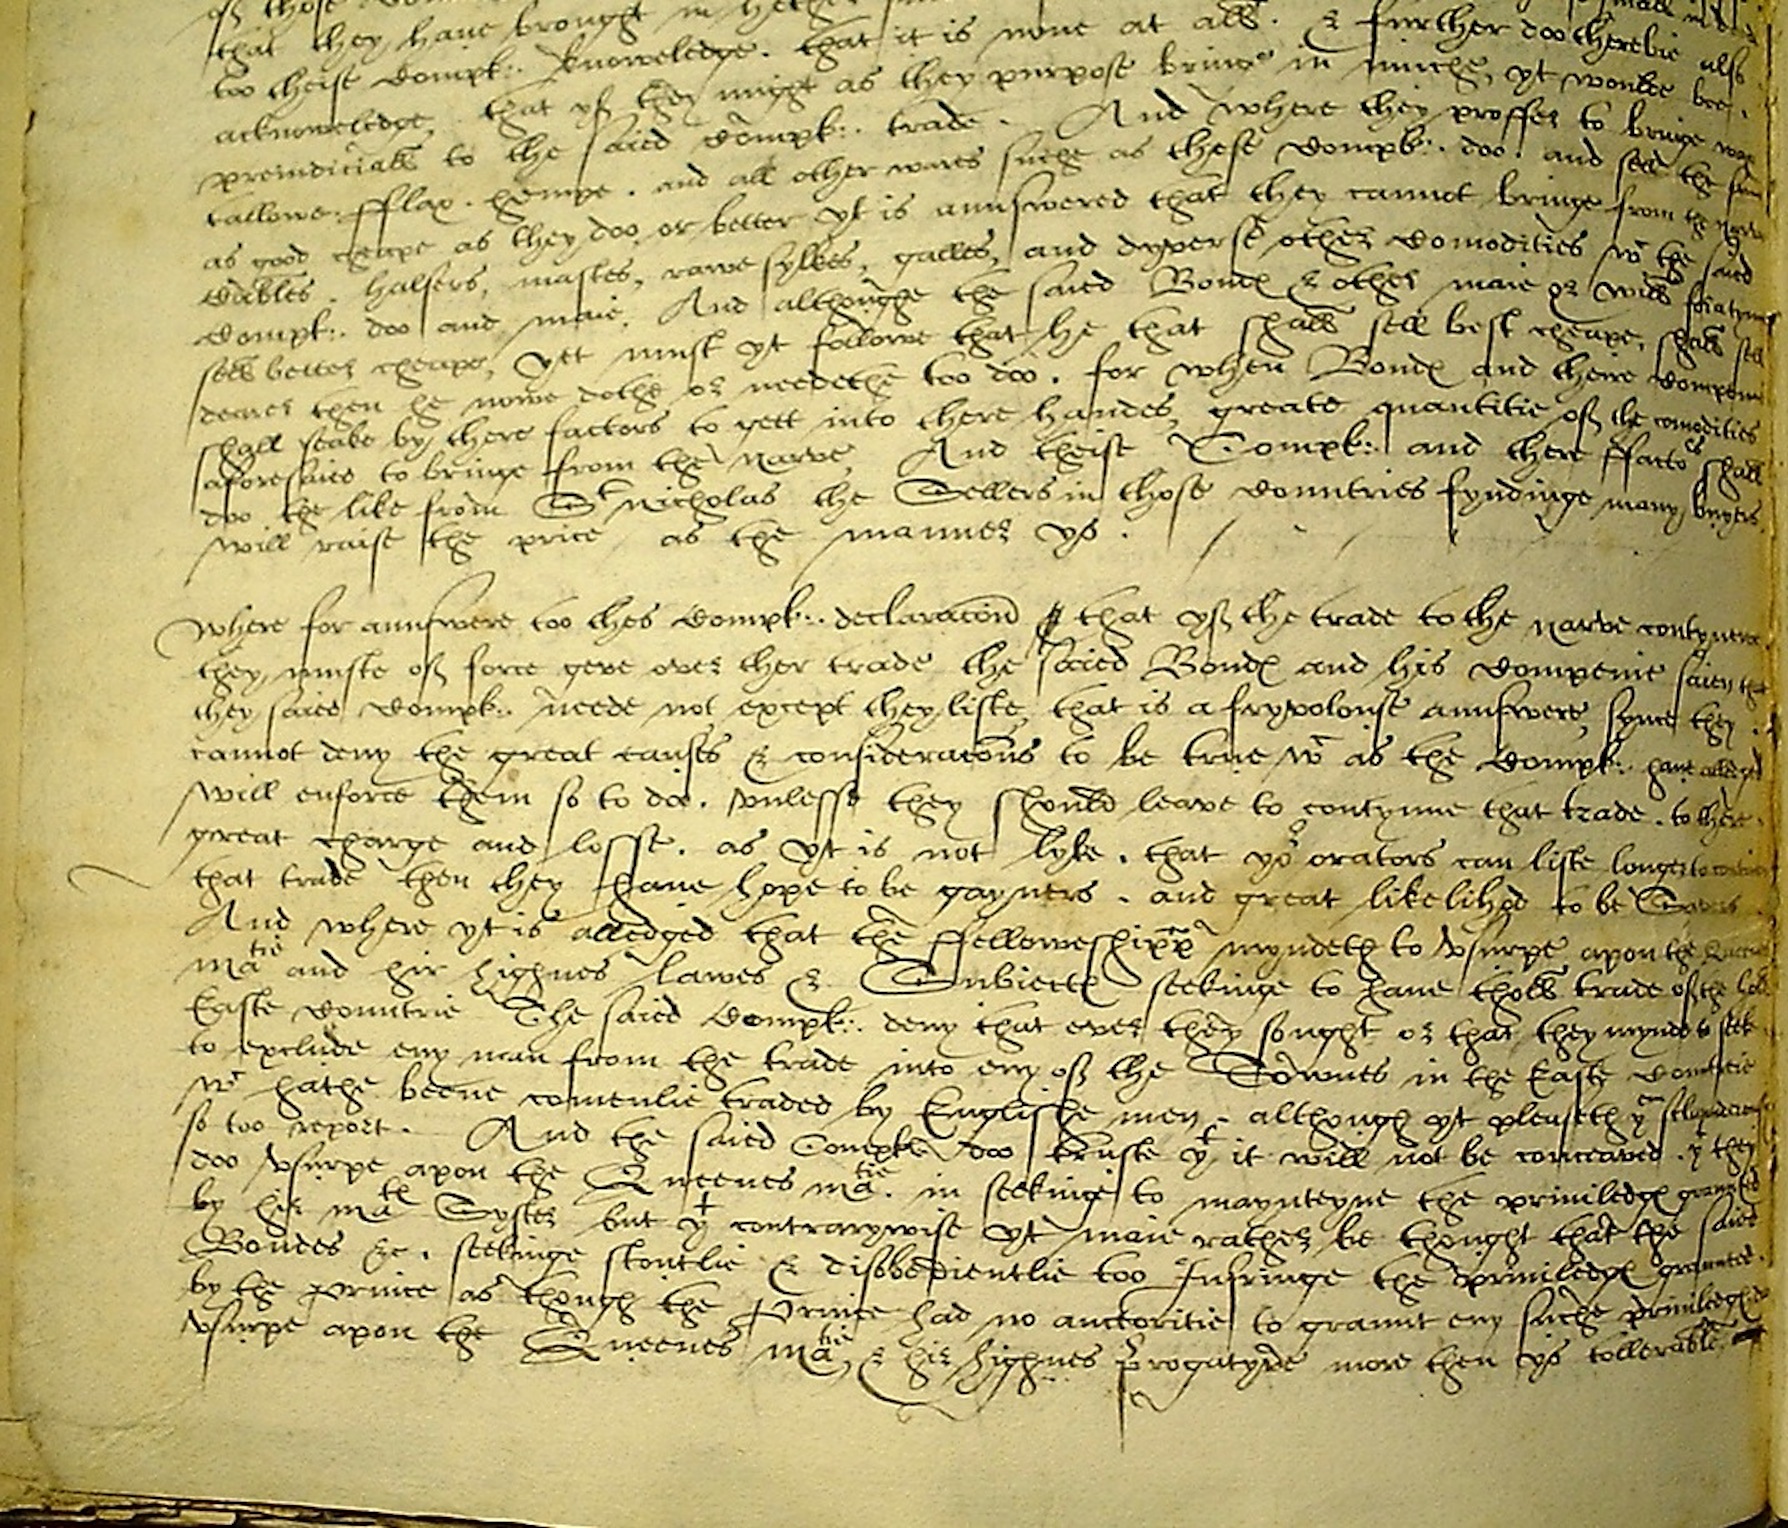 of those
that they haue brought in hether small
too theise Compl:. knoweledge. that it is none at all. & further doo therebie also
acknoweledge, that yf they might as they purpose bringe in muche, yt woulde bee.
preiudiciall to the saied Compl:. trade. And where they proffer to bringe wax
tallowe: fflax. hempe. and all other wares suche as these Compl:. doo. and sell the same
as good cheape as they doo or better yt is aunswered that they cannot bringe from the Narve
Cables. halsers, mastes, rawe sylkes, galles, and dyverse other Comodities wch the saied
Compl:. doo and maie. And althoughe the saied Bondes & other maie or will for a tyme
sell better cheape, yett must yt followe that he that shall sell best cheape, shall sell
dearer then he nowe dothe or needethe too doo. for when Bondes and theire Compenie
shall seake by there factors to gett into there handes, greate quantitie of the comodities
aforesaied to bringe from the Narve, And theise Compl:. and there ffactors shall
doo the like from St Nicholas the Sellers in those Countries fyndinge many buyers
will raise the price as the manner ys.
Where for aunswere too thes Compl:. declaracion that yf the trade to the Narve contynewe
they muste of force geve over ther trade the saied Bondes and his Compenie saien that
they saied Compl:. neede not except they liste, that is a fryvolouse aunswere, syнce they
cannot deny the great causes & consideracions to be true wch as the Compl:. haue alledged
will enforce them so to doe. vnlesse they should leave to contynue that trade. to there
great charge and losse. as yt is not lyke. that yor orators can liste longer to contineue
that trade then they haue hope to be gayners. and great likelihod to be Savers
And where yt is alledged that the ffelloweshipp myndeth to vsurpe apon the Queenes
Matie and hir highnes lawes & Subiectes seekinge to haue tholl trade of the hole
Easte Countrie The saied Compl:. deny that ever they sought or that they mynde to seek
to exclude eny man from the trade into eny of the Townes in the Easte Contrie
wch hathe beene comenlie traded by Englishe men. although yt pleaseth ye
so too report. And the saied Compltes doo truste yt it will not be conceaved. yt they
doo vsurpe apon the Queenes Matie. in seekinge to maynteyne the priuiledges graunted
by hir Mates Syster but yt contrarywise yt maie rather be thought that the saied
Bondes &c. seekinge stoutlie & disobedientlie too Infringe the priuiledges graunted.
by the prince as though the Prince had no auctoritie to graunt eny suche priuiledges do
vsurpe apon the Queenes Matie, & hir highnes prerogatyve more then ys tollerable.